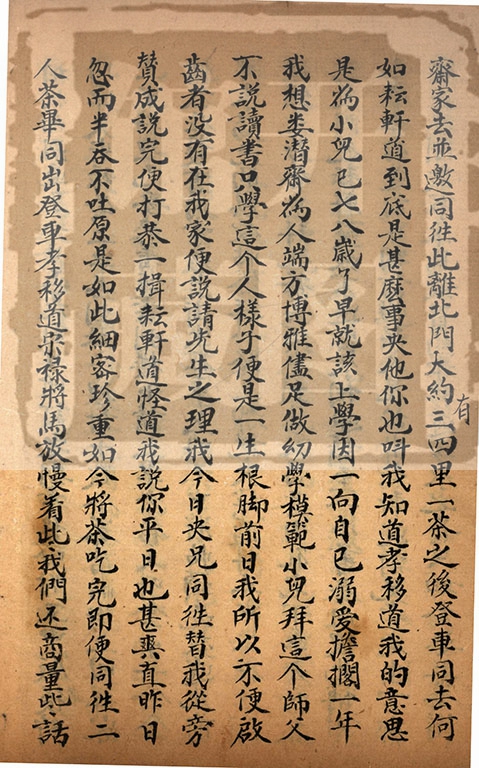 齋家去並邀同徃此離北門大約有三四里一茶之後登車同去何
如耘軒道到底是甚麽事央他你也呌我知道孝移道我的意思
是為小兒已七八歲了早就該上學因一向自己溺愛擔擱一年
我想娄潛齋為人端方博雅儘足做幼學模範小兒拜這个師父
不說讀書只學這个人樣子便是一生根脚前日我所以不便啟
齒者没有在我家便說請先生之理我今日央兄同徃替我從旁
賛成說完便打恭一揖耘軒道怪道我說你平日也甚爽直昨日
忽而半吞不吐原是如此細密珍重如今將茶吃完即便同徃二
人茶畢同出登車孝移道宋禄將馬放慢着些我們还商量些話